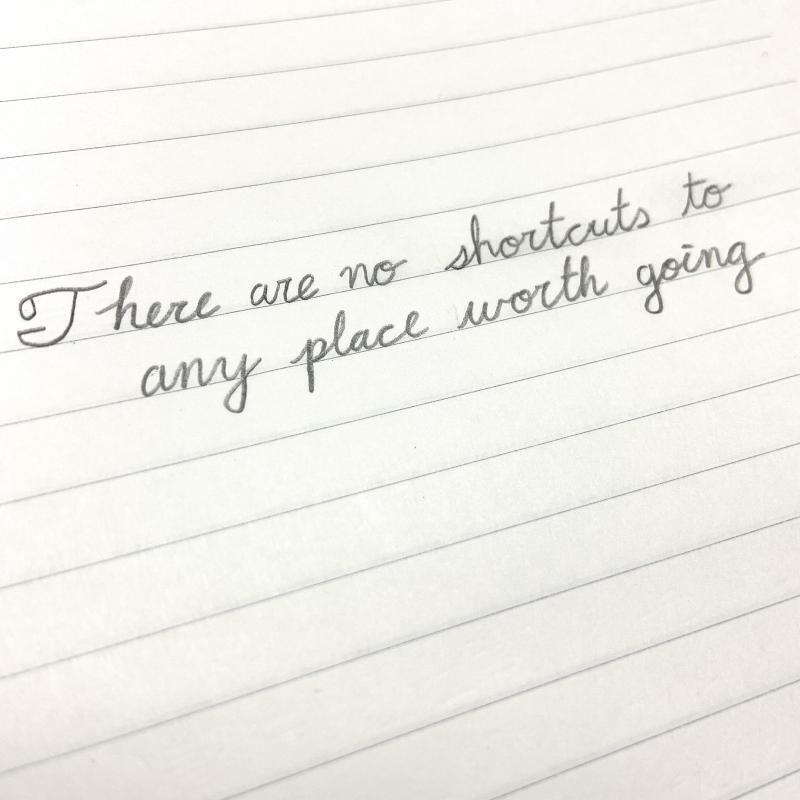 There are no shortcuts to
any place worth going